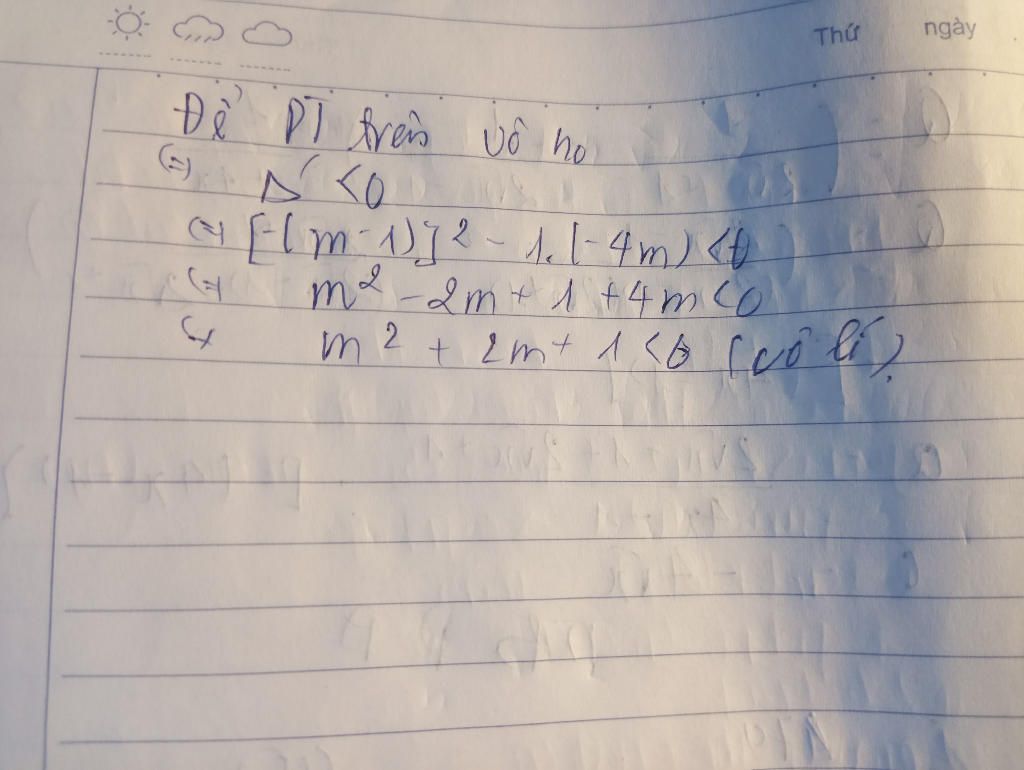 Thứ ngày
Để PT trên vô no
(=) Δ' <0
(=) [-(m-1)]² - 1.(-4m) <0
(=) m² - 2m + 1 + 4m <0
m² + 2m + 1 <0 (vô lí).